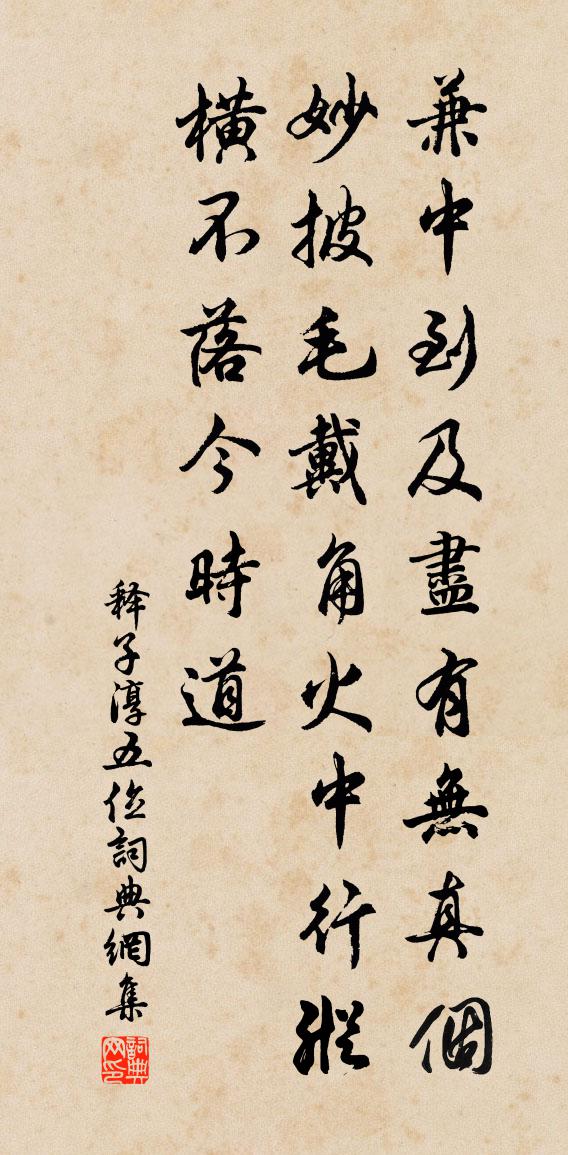 兼中到及盡有無真個
妙披毛戴角火中行縱
橫不落今時道
释子淳五位詞典網集
詞典网印